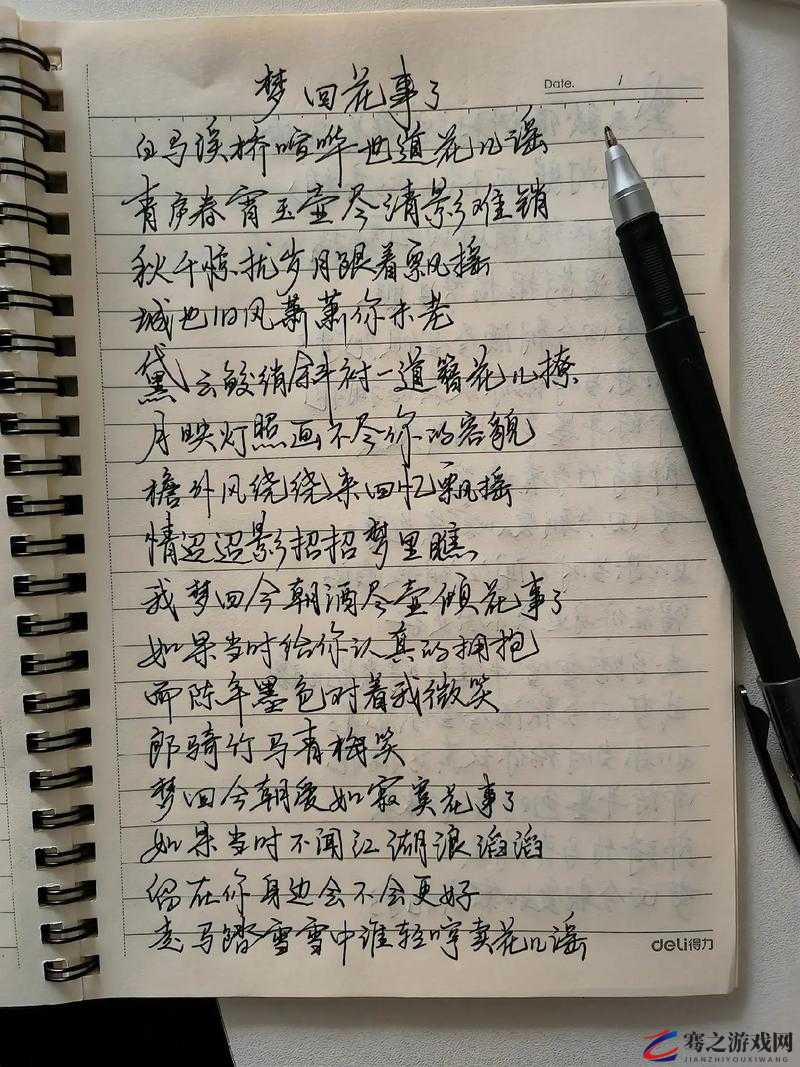 梦回花事了
Date. 1
白马溪桥喧哗一兜道花儿谣
青庐春宵玉壶尽清影难销
秋千惊扰岁月跟着飘摇
城也旧风萧萧你未老
黛云鲛绡斜衬一道簪花儿撩
月映灯照画不尽你的容貌
檐外风绕绕来回忆飘摇
情迢迢影招招梦里瞧
我梦回今朝酒尽壶倾花事了
如果当时给你认真的拥抱
而陈年墨色对着我微笑
郎骑竹马青梅笑
梦回今朝爱如寂寞花事了
如果当时不闻江湖浪滔滔
留在你身边会不会更好
走马踏雪雪中谁轻哼卖花儿谣
deli得力
骞之游戏网
JIANZHIYOUXIWANG